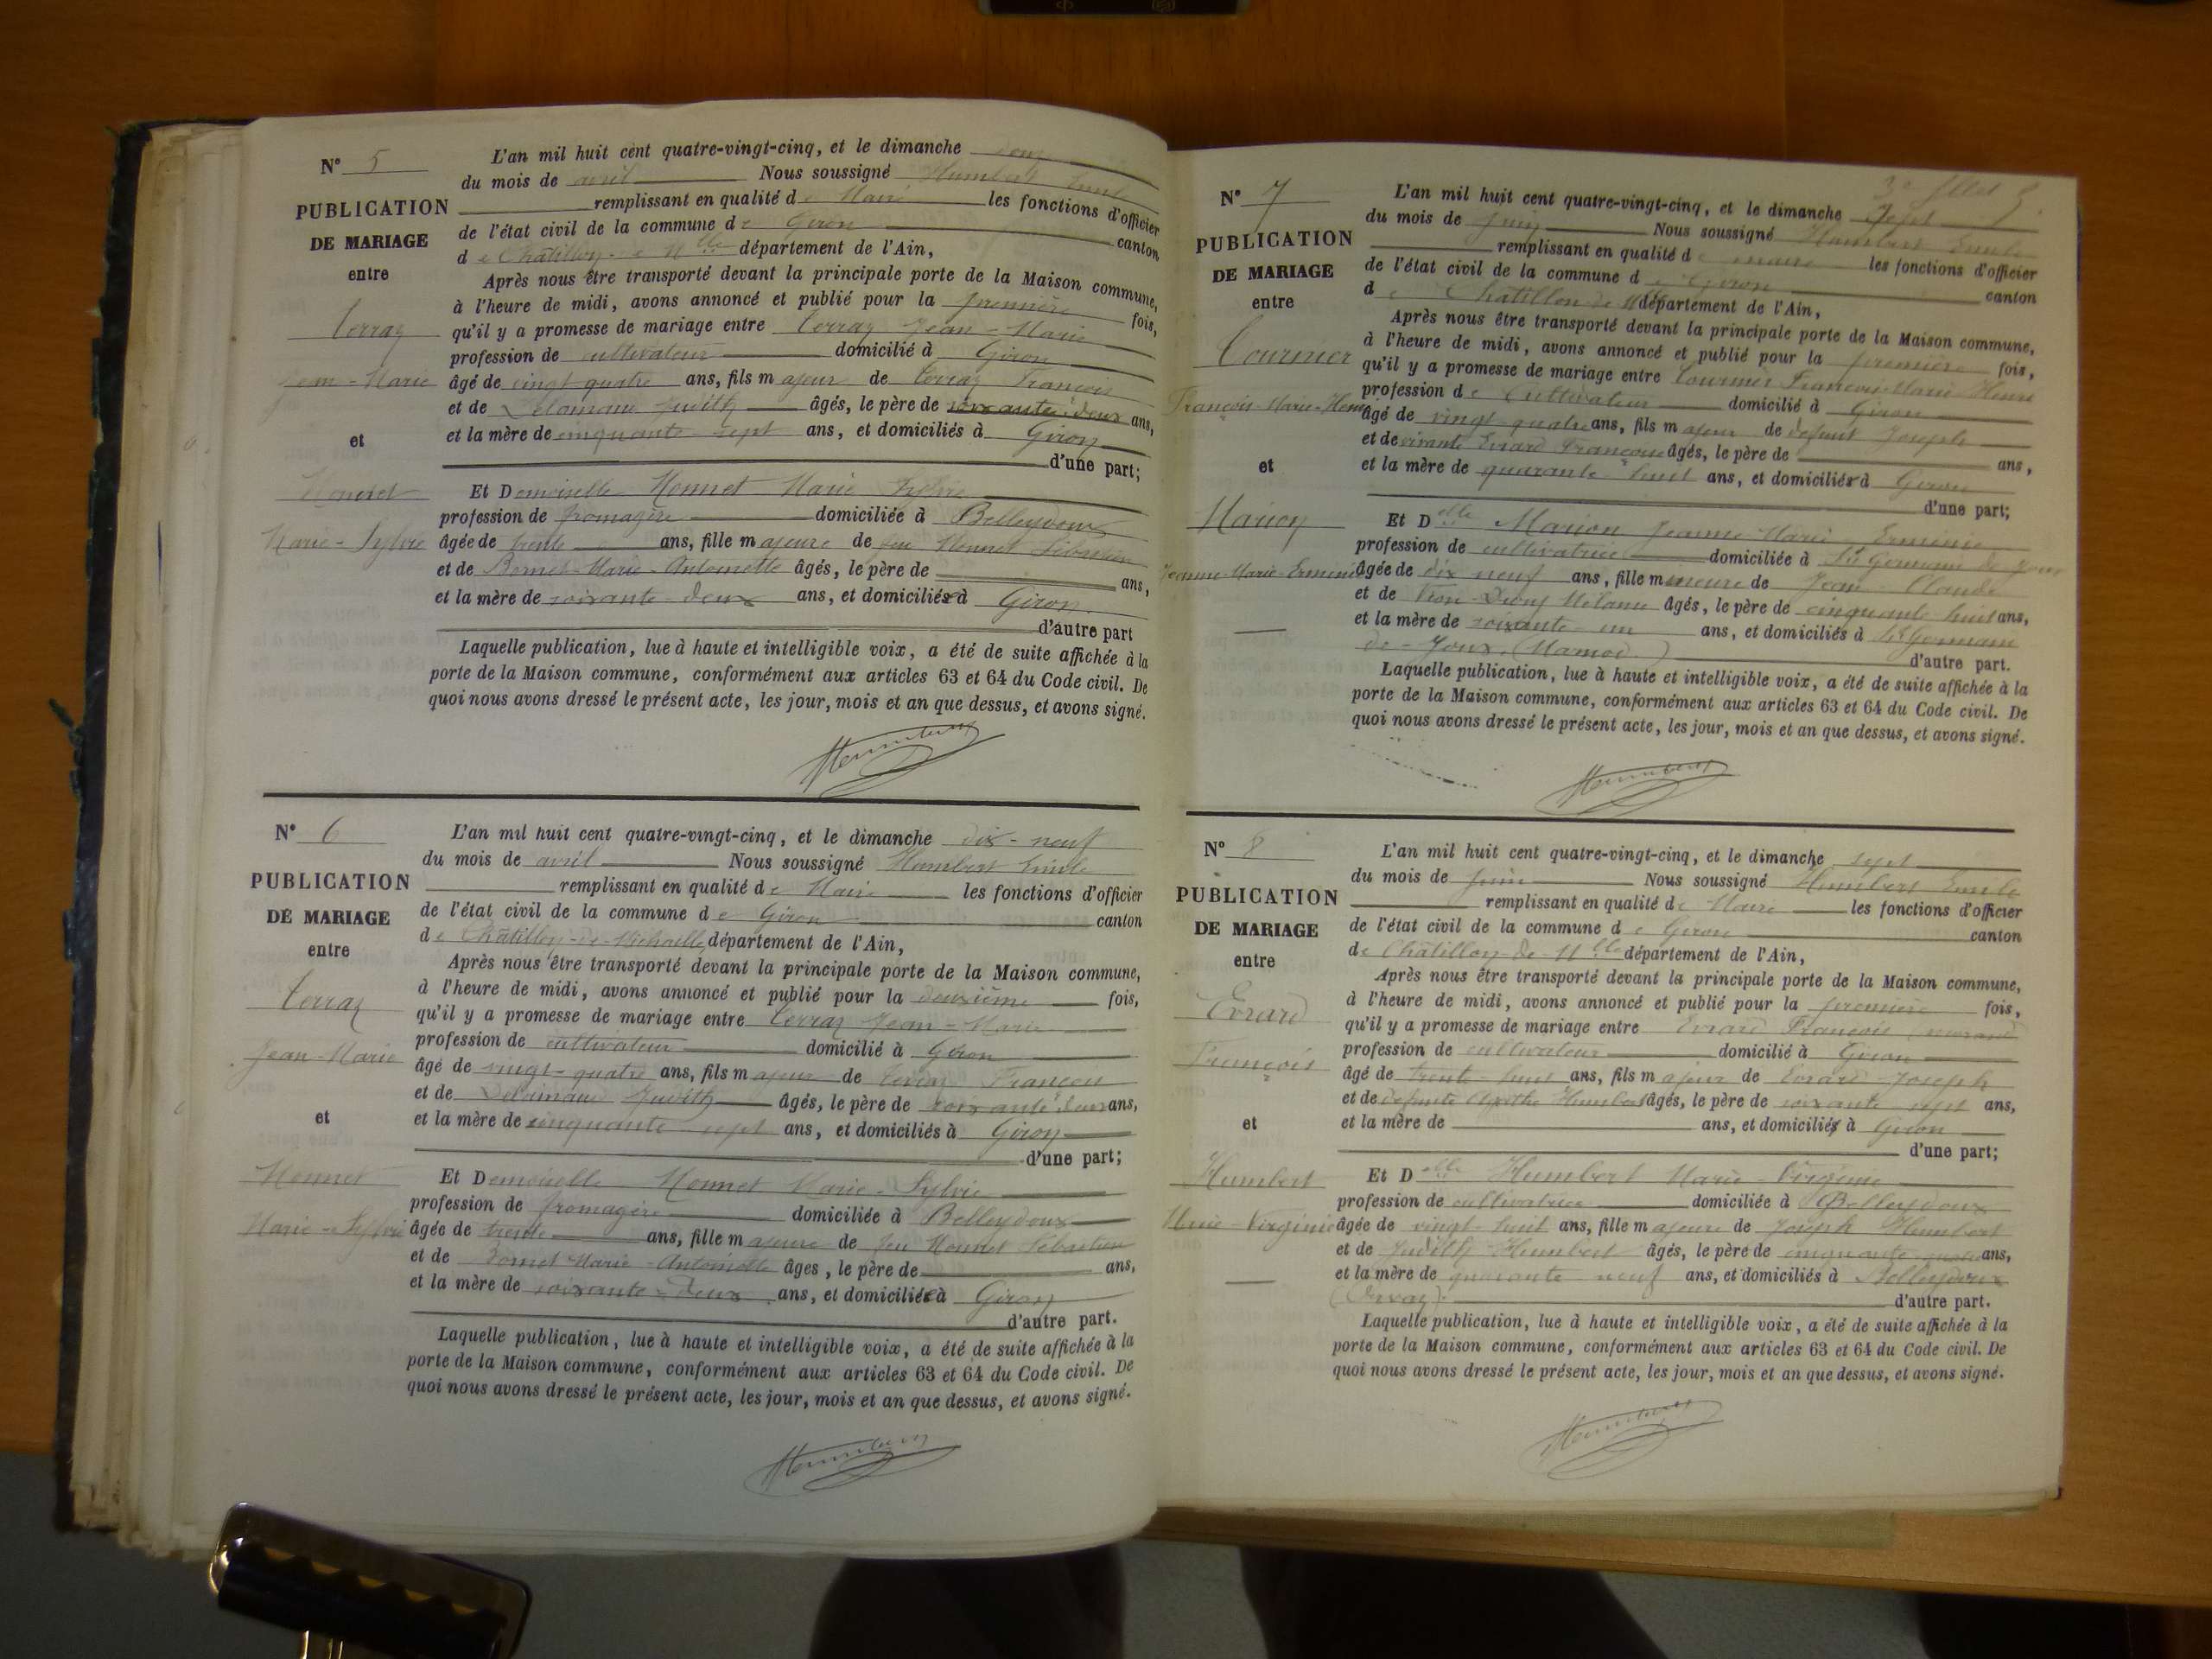 N° 5
PUBLICATION
DE MARIAGE
entre
Cerraz
Jean-Marie
et
Monnet
Marie-Sylvie
L'an mil huit cent quatre-vingt-cinq, et le dimanche
du mois de avril Nous soussigné Humbert Emile
remplissant en qualité de Maire les fonctions d'officier
de l'état civil de la commune de Giron canton
de Châtillon-de-Mlle département de l'Ain,
Après nous être transporté devant la principale porte de la Maison commune,
à l'heure de midi, avons annoncé et publié pour la première fois,
qu'il y a promesse de mariage entre Cerraz Jean-Marie
profession de cultivateur domicilié à Giron
âgé de vingt quatre ans, fils majeur de Cerraz François
et de Judith âgés, le père de soixante-deux ans,
et la mère de cinquante-sept ans, et domiciliés à Giron
d'une part;
Et Demoiselle Monnet Marie Sylvie
profession de fromagère domiciliée à Belleydoux
âgée de trente ans, fille majeure de feu Monnet Sébastien
et de Bornet Marie-Antoinette âgés, le père de ans,
et la mère de soixante-deux ans, et domiciliés à Giron
d'autre part
Laquelle publication, lue à haute et intelligible voix, a été de suite affichée à la
porte de la Maison commune, conformément aux articles 63 et 64 du Code civil. De
quoi nous avons dressé le présent acte, les jour, mois et an que dessus, et avons signé.
Humbert
N° 6
PUBLICATION
DE MARIAGE
entre
Cerraz
Jean-Marie
et
Monnet
Marie-Sylvie
L'an mil huit cent quatre-vingt-cinq, et le dimanche dix-neuf
du mois de avril Nous soussigné Humbert Emile
remplissant en qualité de Maire les fonctions d'officier
de l'état civil de la commune de Giron canton
de Châtillon-de-Michaille département de l'Ain,
Après nous être transporté devant la principale porte de la Maison commune,
à l'heure de midi, avons annoncé et publié pour la deuxième fois,
qu'il y a promesse de mariage entre Cerraz Jean-Marie
profession de cultivateur domicilié à Giron
âgé de vingt-quatre ans, fils majeur de Cerraz François
et de Judith âgés, le père de soixante-deux ans,
et la mère de cinquante-sept ans, et domiciliés à Giron
d'une part;
Et Demoiselle Monnet Marie-Sylvie
profession de fromagère domiciliée à Belleydoux
âgée de trente ans, fille majeure de feu Monnet Sébastien
et de Bornet Marie-Antoinette âges, le père de ans,
et la mère de soixante-deux ans, et domiciliés à Giron
d'autre part.
Laquelle publication, lue à haute et intelligible voix, a été de suite affichée à la
porte de la Maison commune, conformément aux articles 63 et 64 du Code civil. De
quoi nous avons dressé le présent acte, les jour, mois et an que dessus, et avons signé.
Humbert
N° 7
PUBLICATION
DE MARIAGE
entre
Tournier
François-Marie-Henri
et
Marion
Jeanne-Marie-Erminie
L'an mil huit cent quatre-vingt-cinq, et le dimanche Sept
du mois de Juin Nous soussigné Humbert Emile
remplissant en qualité de maire les fonctions d'officier
de l'état civil de la commune de Giron canton
de Châtillon de Mlle département de l'Ain,
Après nous être transporté devant la principale porte de la Maison commune,
à l'heure de midi, avons annoncé et publié pour la première fois,
qu'il y a promesse de mariage entre Tournier François-Marie Henri
profession de Cultivateur domicilié à Giron
âgé de vingt-quatre ans, fils majeur de défunt Joseph
et de vivante Evrard Françoise âgés, le père de ans,
et la mère de quarante huit ans, et domiciliés à Giron
d'une part;
Et Delle Marion Jeanne Marie Erminie
profession de cultivatrice domiciliée à St Germain de Joux
âgée de dix neuf ans, fille mineure de Jean Claude
et de Mélanie âgés, le père de cinquante huit ans,
et la mère de soixante-un ans, et domiciliés à St Germain
de-Joux. (Marnod)
d'autre part.
Laquelle publication, lue à haute et intelligible voix, a été de suite affichée à la
porte de la Maison commune, conformément aux articles 63 et 64 du Code civil. De
quoi nous avons dressé le présent acte, les jour, mois et an que dessus, et avons signé.
Humbert
N° 8
PUBLICATION
DE MARIAGE
entre
Evrard
François
et
Humbert
Marie-Virginie
L'an mil huit cent quatre-vingt-cinq, et le dimanche sept
du mois de Juin Nous soussigné Humbert Emile
remplissant en qualité de Maire les fonctions d'officier
de l'état civil de la commune de Giron canton
de Châtillon-de-Mlle département de l'Ain,
Après nous être transporté devant la principale porte de la Maison commune,
à l'heure de midi, avons annoncé et publié pour la première fois,
qu'il y a promesse de mariage entre Evrard François
profession de cultivateur domicilié à Giron
âgé de trente-huit ans, fils majeur de Evrard Joseph
et de défunte Humbert âgés, le père de soixante sept ans,
et la mère de ans, et domiciliés à Giron
d'une part;
Et Delle Humbert Marie-Virginie
profession de cultivatrice domiciliée à Belleydoux
âgée de vingt-huit ans, fille majeure de Joseph Humbert
et de Judith Humbert âgés, le père de cinquante ans,
et la mère de quarante neuf ans, et domiciliés à Belleydoux
(Orvaz).
d'autre part.
Laquelle publication, lue à haute et intelligible voix, a été de suite affichée à la
porte de la Maison commune, conformément aux articles 63 et 64 du Code civil. De
quoi nous avons dressé le présent acte, les jour, mois et an que dessus, et avons signé.
Humbert